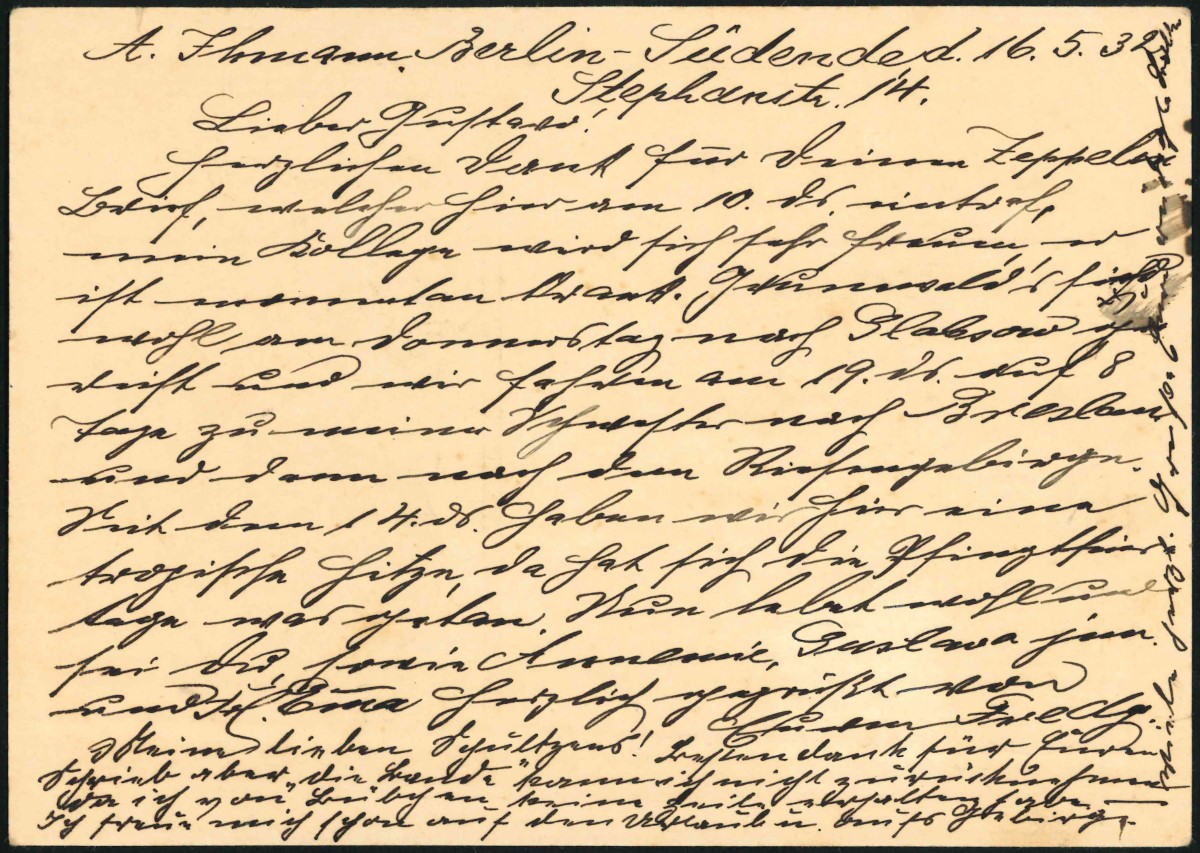 A. Ihmann. Berlin-Südende d. 16. 5. 32
Stephanstr. 14.
Lieber Gustav!
Herzlichen Dank für Deinen Zeppelin
Brief, welcher hier am 10. ds. eintraf,
mein Kollege wird sich sehr freuen, er
ist momentan krank. Grunwald's sind
wohl am Donnerstag nach Glabsow ge
reist und wir fahren am 19. ds. auf 8
Tage zu meiner Schwester nach Breslau
und dann nach dem Riesengebirge.
Seit dem 14. ds. haben wir hier eine
tropische Hitze, da hat sich die Pfingstfeier
tage was getan. Nun lebet wohl und
sei Du, sowie Annemie, Gustava jun.
und Frl. Ema herzlich gegrüßt von
Eurem Fredy.
Meine lieben Schultzens! Besten Dank für Euren
Schrieb aber "die Bande" kann ich nicht zurücknehmen
da ich von Bübchen keine Zeile erhalten habe.
Ich freue mich schon auf den Urlaub u. aufs Gebirge